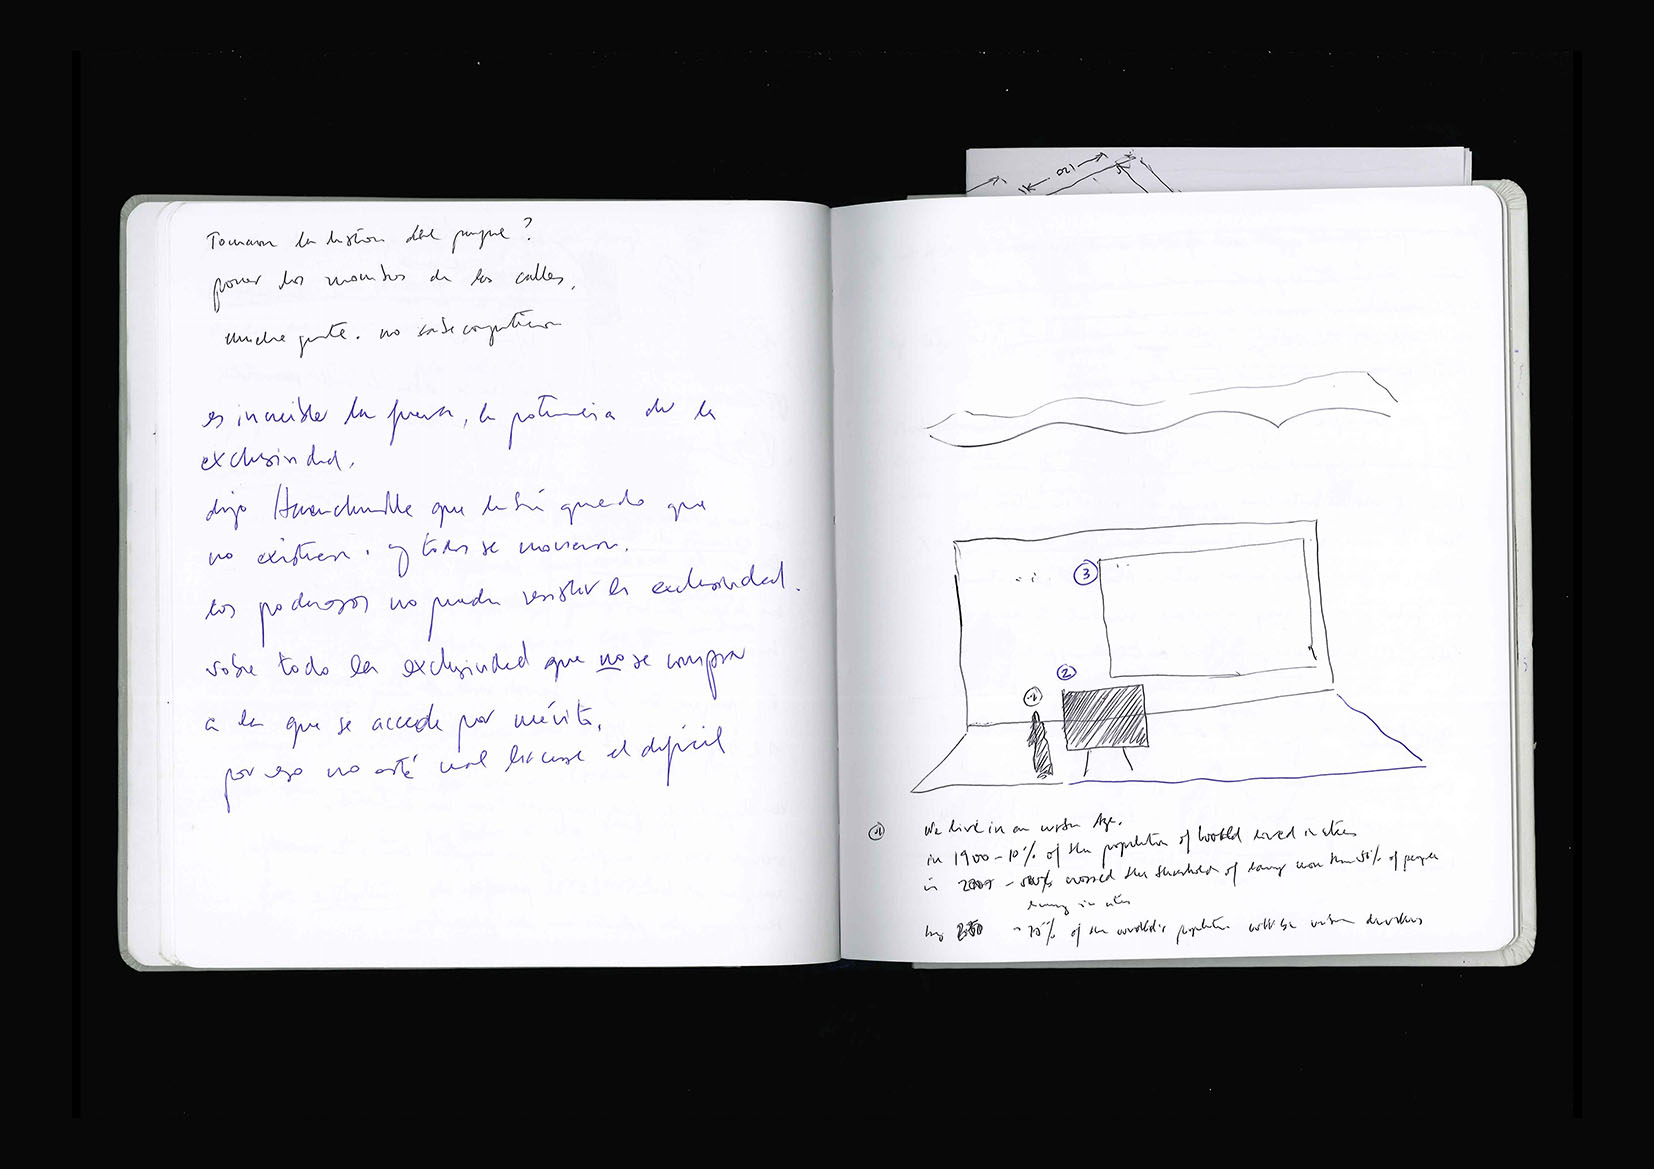 120
Tomaron la del parque?
poner los nombres de las calles.
mucha gente. no
es increíble la fuerza, la potencia de la
exclusividad.
dijo que quedo que
no existiera. y todos se movieron.
los poderosos no pueden resistir la exclusividad.
sobre todo la exclusividad que no se compra
a la que se accede por mérito.
por eso no esté mal hacerse el difícil
3
2
1
1 We live in an urban Age.
in 1900 - 10% of the population of World lived in cities
in - crossed the threshold of having more than 50% of people
living in cities
by - 75% of the world's population will be urban dwellers